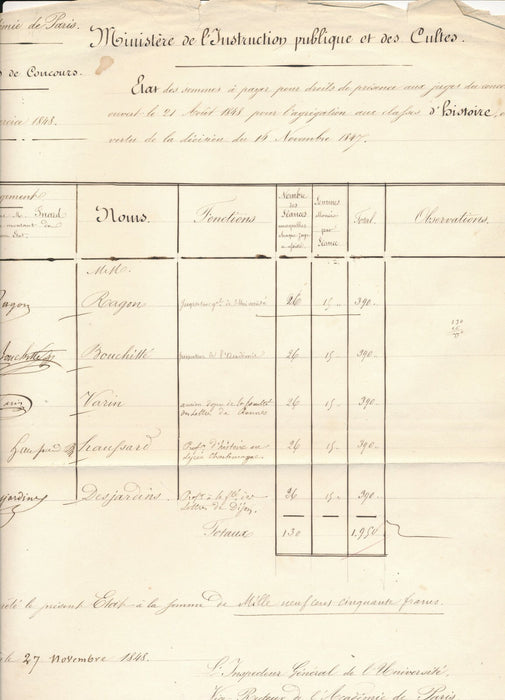 émie de Paris.
Ministère de l'Instruction publique et des Cultes.
s de Concours.
Etat des sommes à payer pour droits de présence aux juges du conco
1848.
ouvert le 21 Août 1848 pour l'agrégation aux classes d'histoire, e
vertu de la décision du 14 Novembre 1847.
Noms.
Fonctions
Nombre des Séances auxquelles chaque juge a assisté
Sommes allouées par Séance
Total.
Observations.
MM.
Ragon
Ragon
Inspecteur gal de l'Université
26
15
390
Bouchitté
Bouchitté
Inspecteur de l'Académie
26
15
390
Varin
ancien doyen de la faculté
des Lettres de Rennes
26
15
390
Haussard
Profr d'histoire au
Lycée Charlemagne.
26
15
390
jardins
Desjardins
Profr à la fté des
Lettres de Dijon.
26
15
390
Totaux
130
1.950
êté le présent Etat à la somme de Mille neuf cent cinquante francs.
le 27 Novembre 1848.
L'Inspecteur Général de l'Université,
Vice-Recteur de l'Académie de Paris